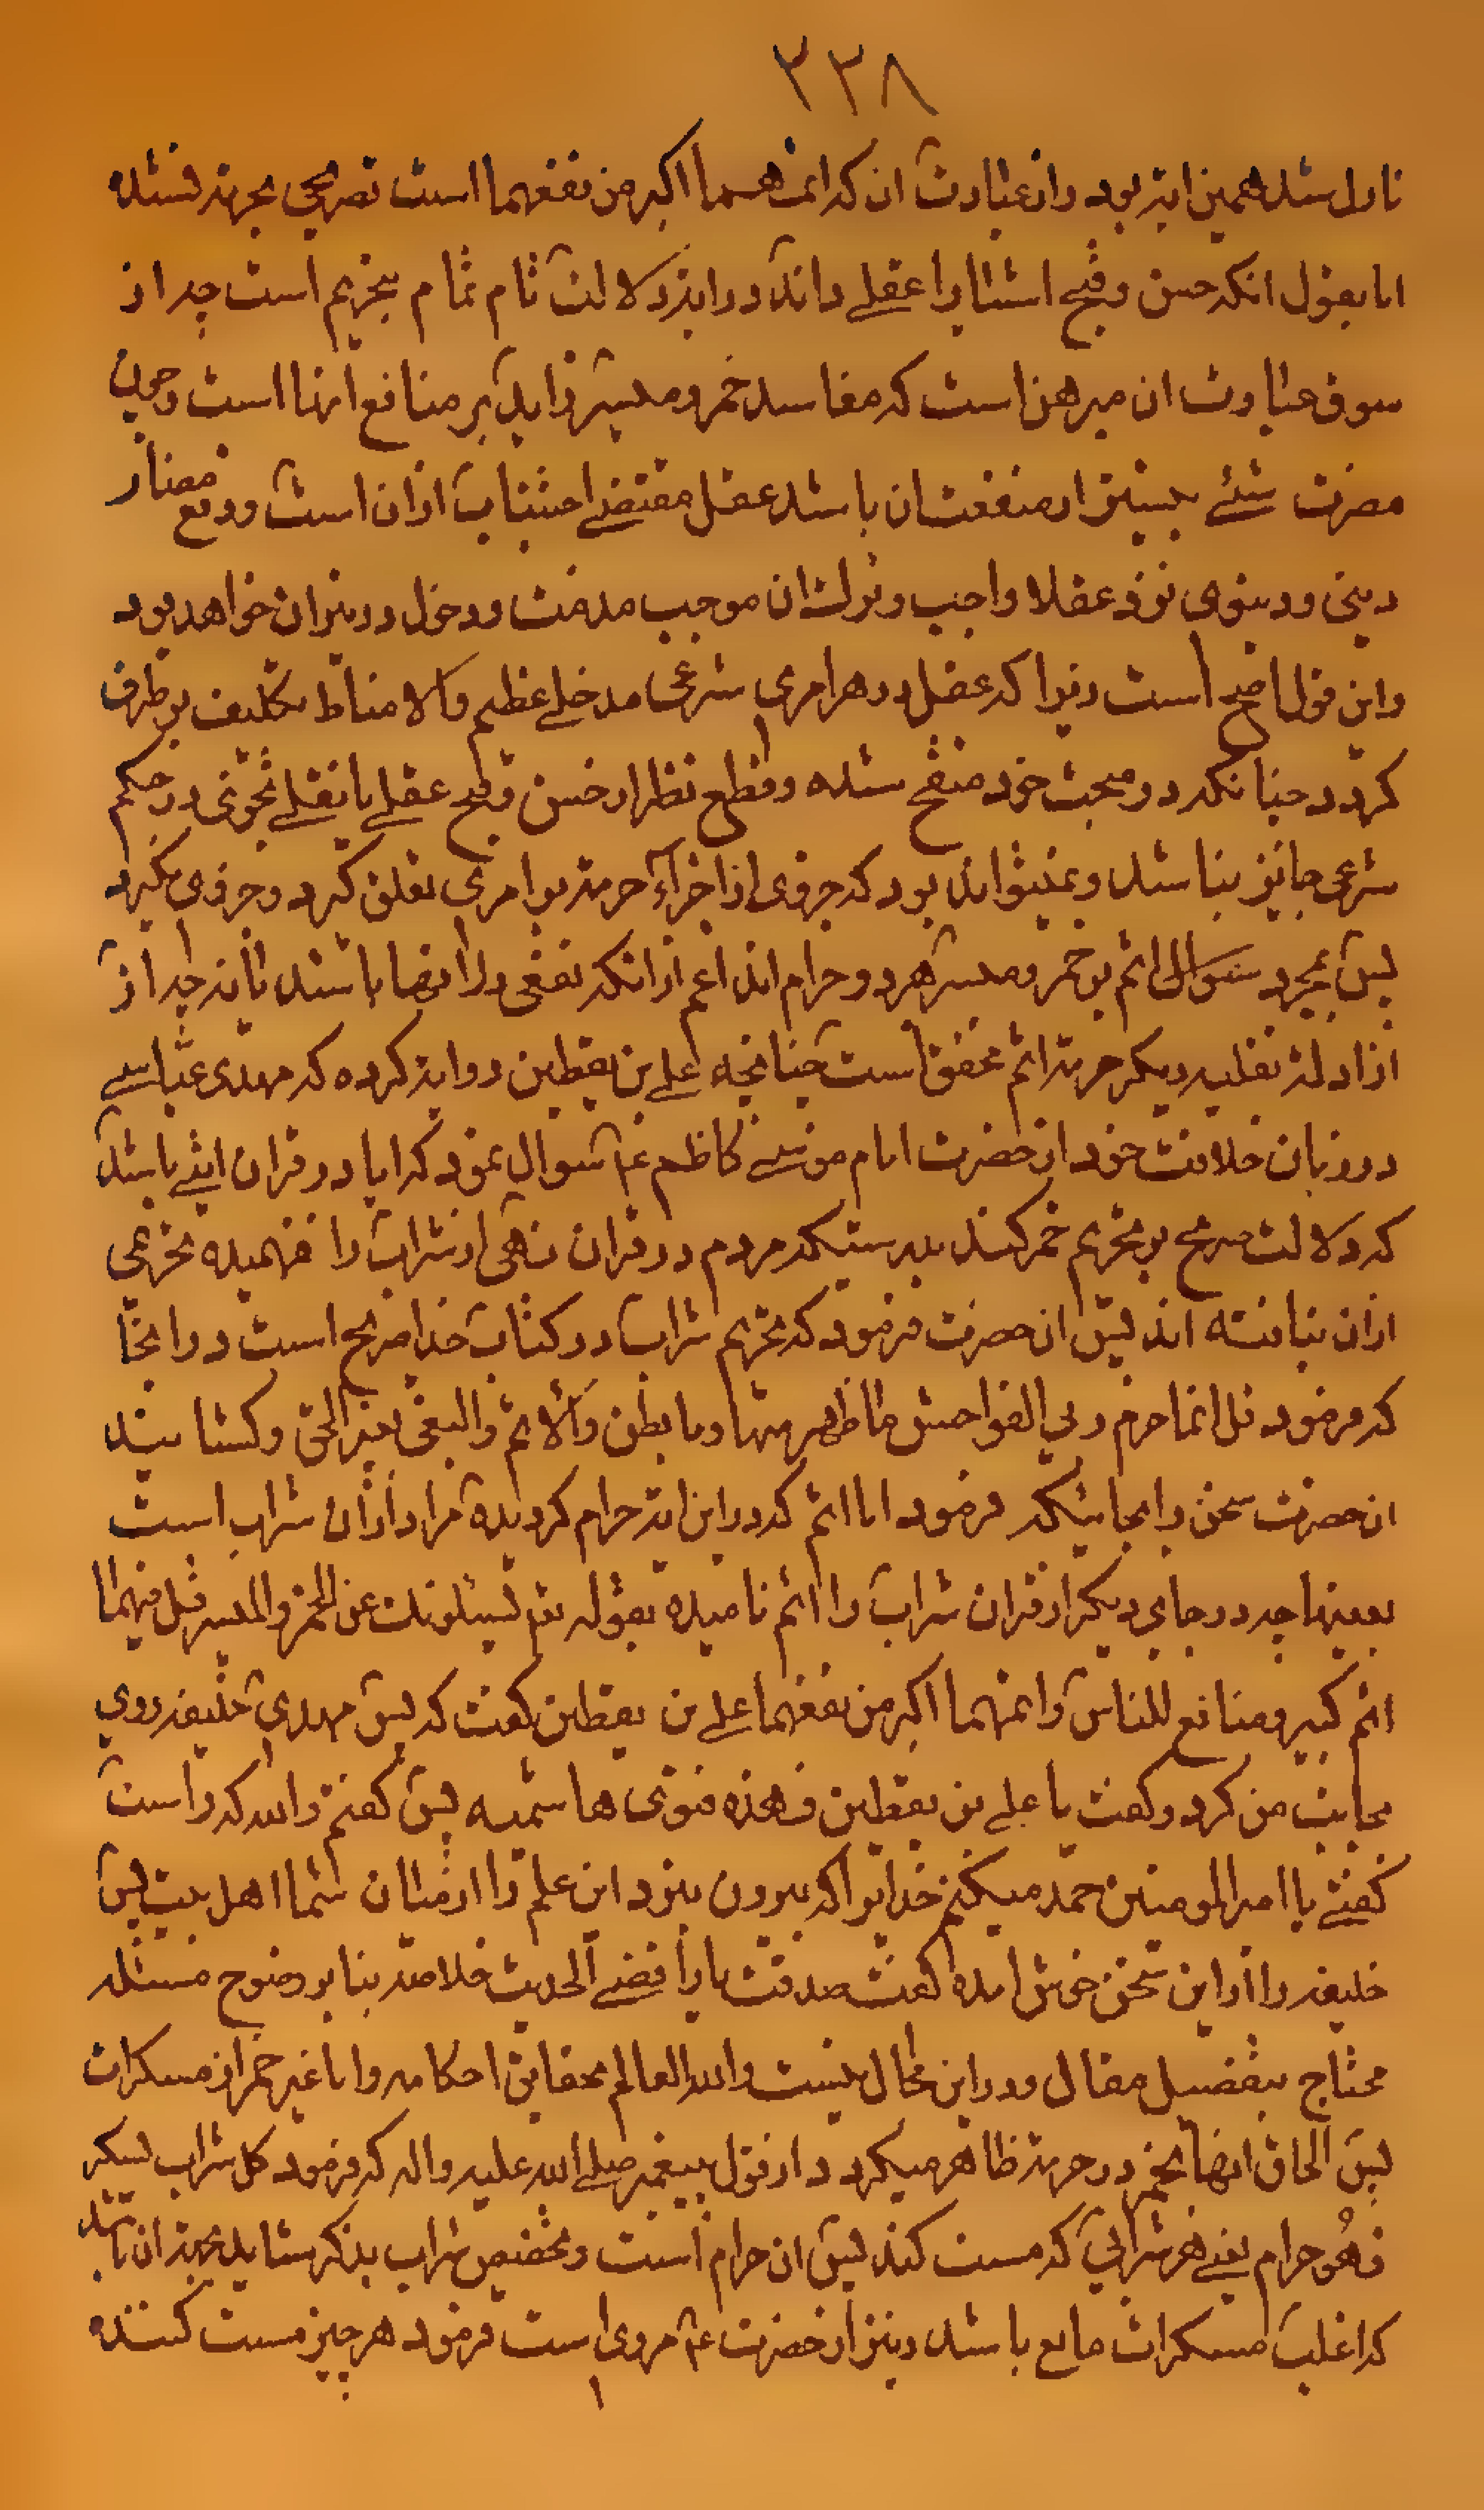 ۲۳۸
نازل شده همین ایه بود و از عبارت ان که اثمهما اکبر من نفعهما است تصریحی بحرمة نشده
اما بقول انکه حسن و قبح اشیا را عقلی داند در ایه دلالت تام تمام بتحریم است چه از
سوق عبارت ان مبرهن است که مفاسد خمر و میسر زاید بر منافع انها است و چون
مضرت شئی بیشتر از منفعت ان باشد عقل مقتضی اجتناب از ان است و دفع مضار
دینی و دنیوی نزد عقلا واجب و ترک ان موجب مذمت و دخول در نیران خواهد بود
و این قول اصح است زیرا که عقل در هر امری شرعی مدخلی عظیم والا مناط تکلیف بر طرف
کردد چنانکه در مبحث خود منقح شده و قطع نظر از حسن و قبح عقلی یا نقلی تجزی در حکم
شرعی جایز نباشد و نمیتواند بود که جزوی از اجزاء حرمة بر امری تعلق کرد و جزوی نکیرد
پس بمجرد اثم بر خمر و میسر هر دو حرام اند اعم از انکه نفعی در انها باشد یا نه چه از
از ادله نقلیه دیکر حرمة اثم محقق است چنانچه علی بن یقطین روایة کرده که مهدی عباسی
در زمان خلافت خود از حضرت امام موسی کاظم ع سوال نمود که ایا در قران ایتی باشد
که دلالت صریح بر تحریم خمر کند بدرستیکه مردم در قران نهی از شراب را فهمیده تحریمی
از ان نیافته اند پس ان حضرت فرمود که تحریم شراب در کتاب خدا صریح است در انجا
که فرمود قل انما حرم ربی الفواحش ما ظهر منها و ما بطن والاثم والبغی بغیر الحق و کشانید
ان حضرت سخن را بجائیکه فرمود اما اثم که در این ایه حرام کردیده مراد از ان شراب است
بعینها چه در جای دیکر از قران شراب را اثم نامیده بقوله تعم یسئلونک عن الخمر والمیسر قل فیهما
اثم کبیر و منافع للناس واثمهما اکبر من نفعهما علی بن یقطین کفت که پس مهدی خلیفه روی
بجانب من کرد و کفت یا علی بن یقطین فهذه فتوی هاشمیه پس کفتم والله که راست
کفتی یا امیر المومنین حمد میکنم خدایرا که بیرون نبرد این علم را از میان شما اهل بیت پس
خلیفه را از این سخن خوش امده کفت صدقت یا رافضی الحدیث خلاصه بنا بر وضوح مسئله
محتاج بتفصیل مقال و در این مجال نیست والله العالم بحقایق احکامه و اما غیر خمر از مسکرات
پس الحاق انها بخمر در حرمة ظاهر میکردد از قول پیغمبر صلی الله علیه و اله که فرمود کل شراب یسکر
فهو حرام یعنی هر شرابی که مست کند پس ان حرام است و تخصیص شراب بذکر شاید بجهة ان باشد
که اغلب مسکرات مایع باشد و نیز از حضرت ع مروی است فرمود هر چیز مست کننده